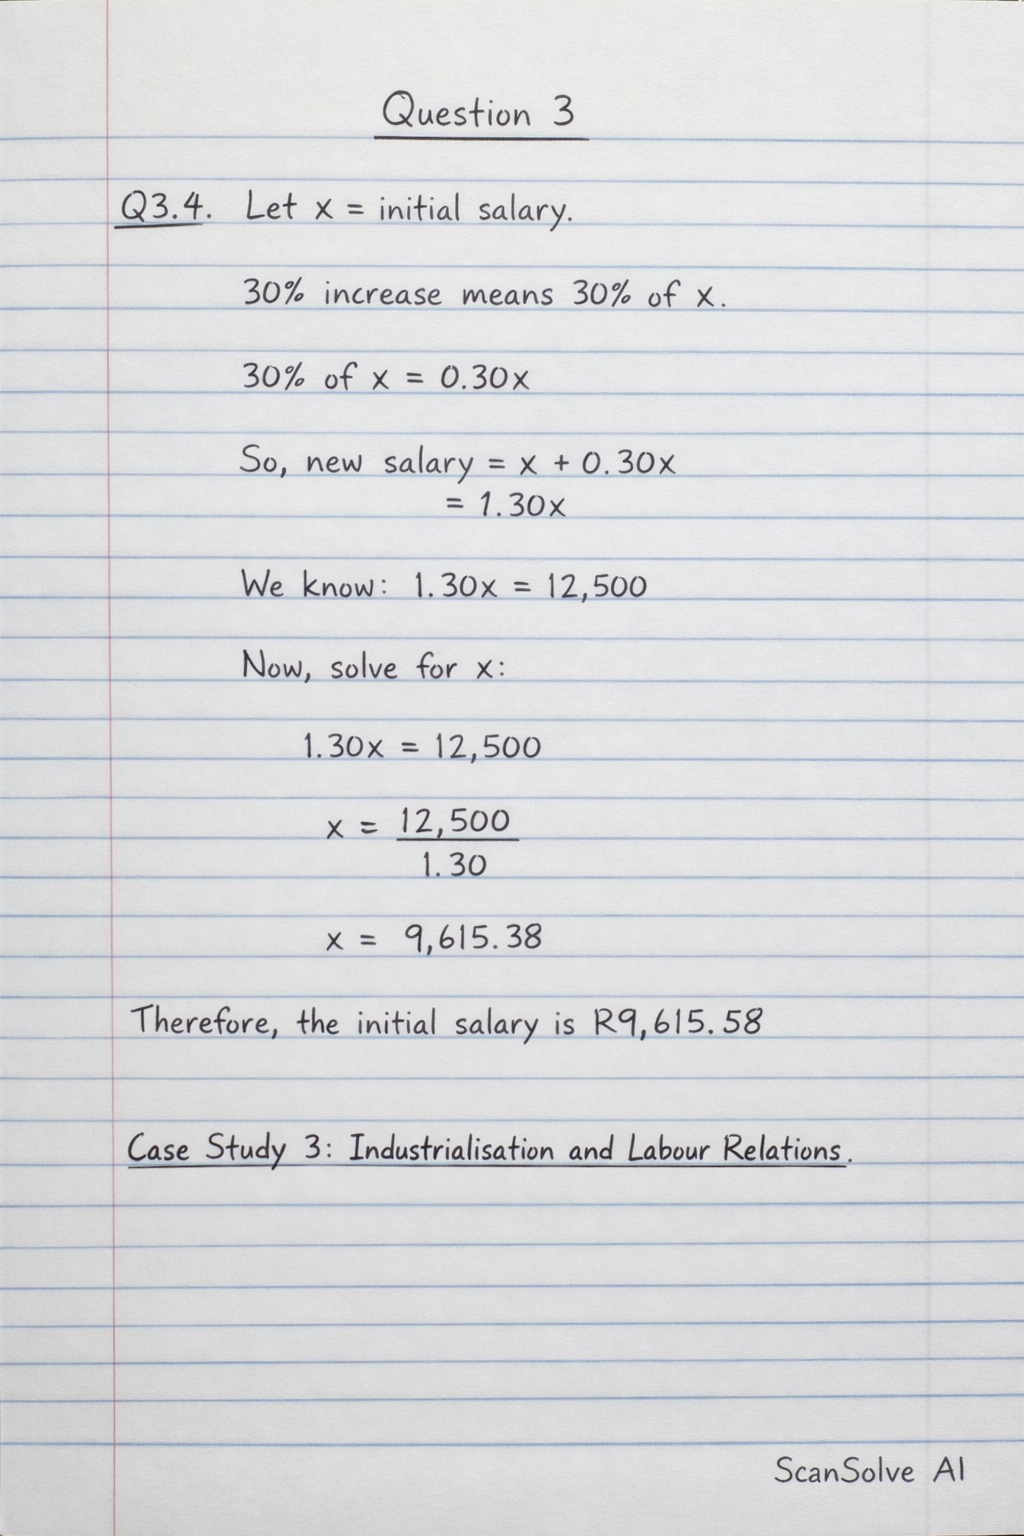 Question 3
Q3.4. Let x = initial salary.
30% increase means 30% of x.
30% of x = 0.30x
So, new salary = x + 0.30x
= 1.30x
We know: 1.30x = 12,500
Now, solve for x:
1.30x = 12,500
x = 12,500
1.30
x = 9,615.38
Therefore, the initial salary is R9,615.58
Case Study 3: Industrialisation and Labour Relations.
ScanSolve AI